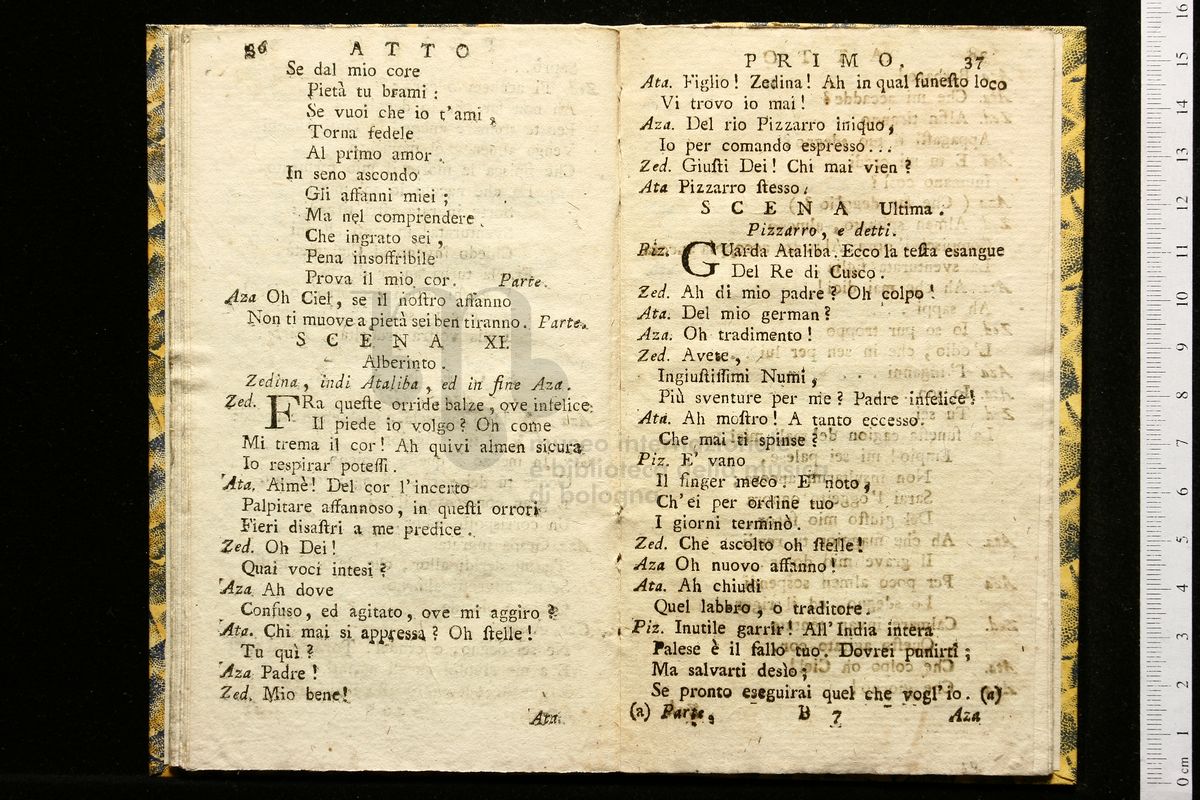 36 A T T O
Se dal mio core
Pietà tu brami :
Se vuoi che io t'ami ,
Torna fedele
Al primo amor .
In seno ascondo
Gli affanni miei ;
Ma nel comprendere
Che ingrato sei ,
Pena insoffribile
Prova il mio cor. Parte.
Aza Oh Ciel, se il nostro affanno
Non ti muove a pietà sei ben tiranno. Parte.
S C E N A XI.
Alberinto .
Zedina, indi Ataliba, ed in fine Aza.
Zed. FRa queste orride balze, ove infelice
Il piede io volgo? Oh come
Mi trema il cor! Ah quivi almen sicura
Io respirar potessi .
Ata. Aimè! Del cor l'incerto
Palpitare affannoso, in questi orrori
Fieri disastri a me predice .
Zed. Oh Dei !
Quai voci intesi ?
Aza Ah dove
Confuso, ed agitato, ove mi aggiro ?
Ata. Chi mai si appressa ? Oh stelle !
Tu quì ?
Aza Padre !
Zed. Mio bene!
Ata.
P R I M O. 37
Ata. Figlio! Zedina! Ah in qual funesto loco
Vi trovo io mai !
Aza. Del rio Pizzarro iniquo,
Io per comando espresso...
Zed. Giusti Dei! Chi mai vien ?
Ata Pizzarro stesso.
S C E N A Ultima .
Pizzarro, e detti.
Piz. GUarda Ataliba. Ecco la testa esangue
Del Re di Cusco.
Zed. Ah di mio padre? Oh colpo !
Ata. Del mio german ?
Aza. Oh tradimento !
Zed. Avete,
Ingiustissimi Numi,
Più sventure per me? Padre infelice!
Ata. Ah mostro! A tanto eccesso
Che mai ti spinse ?
Piz. E' vano
Il finger meco. E' noto,
Ch' ei per ordine tuo
I giorni terminò.
Zed. Che ascolto oh stelle!
Aza Oh nuovo affanno !
Ata. Ah chiudi
Quel labbro, o traditore.
Piz. Inutile garrir! All' India intera
Palese è il fallo tuo. Dovrei punirti ;
Ma salvarti desìo ;
Se pronto eseguirai quel che vogl'io. (a)
(a) Parte, B 7 Aza
museo internazionale
e biblioteca della musica
di bologna